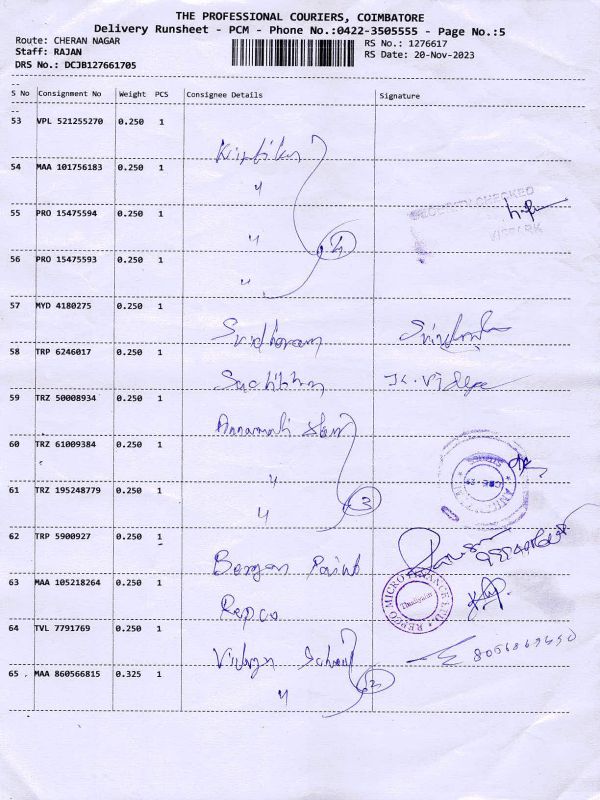 THE PROFESSIONAL COURIERS, COIMBATORE
Delivery Runsheet - PCM - Phone No.:0422-3505555 - Page No.:5
Route: CHERAN NAGAR RS No.: 1276617
Staff: RAJAN RS Date: 20-Nov-2023
DRS No.: DCJB127661705
S No Consignment No Weight PCS Consignee Details Signature
53 VPL 521255270 0.250 1
54 MAA 101756183 0.250 1 "
SECURITY CHECKED
55 PRO 15475594 0.250 1 "
4
56 PRO 15475593 0.250 1 "
57 MYD 4180275 0.250 1 Sridharan
58 TRP 6246017 0.250 1
59 TRZ 50008934 0.250 1
60 TRZ 61009384 0.250 1 "
61 TRZ 195248779 0.250 1 " 3
62 TRP 5900927 0.250 1 Bergen Paint
63 MAA 105218264 0.250 1 Repco
REPCO MICRO FINANCE LTD.
Thudiyalur
64 TVL 7791769 0.250 1 School
65 MAA 860566815 0.325 1 " 2